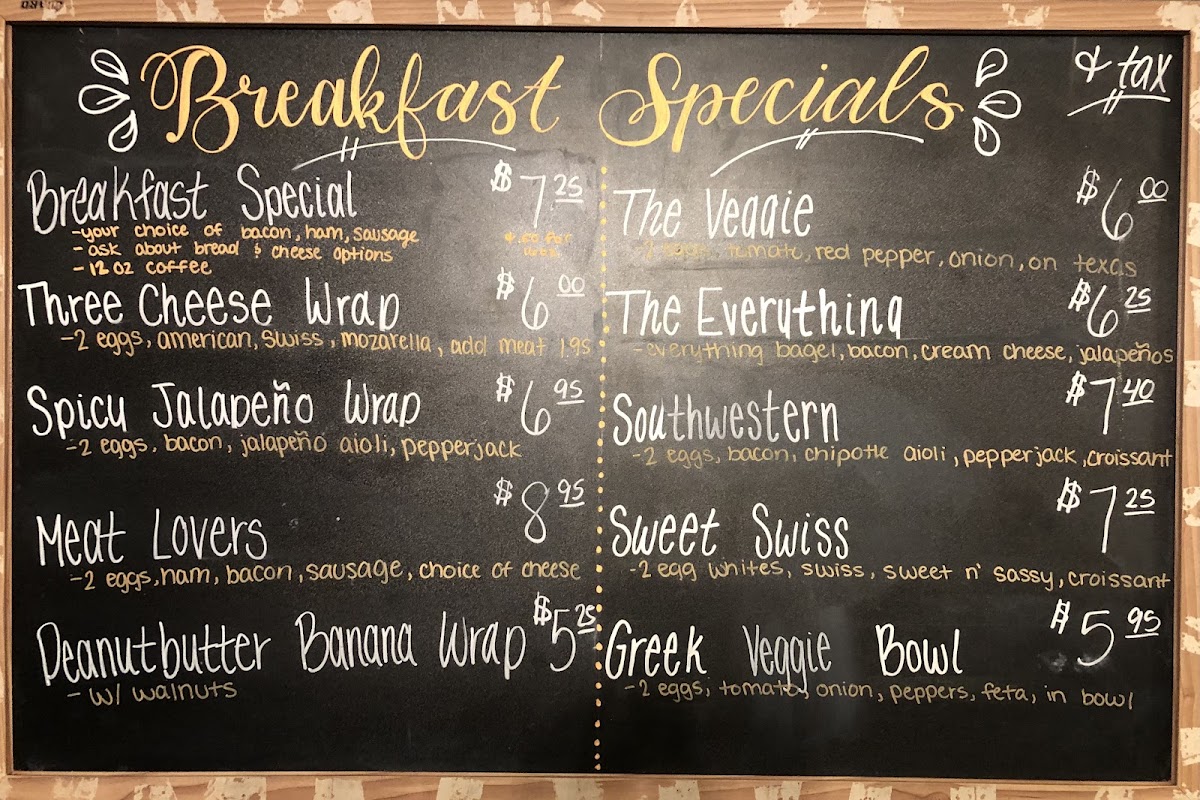 Breakfast Specials
& tax
Breakfast Special $7.25
-your choice of bacon, ham, sausage
- ask about bread & cheese options
- 12 oz coffee
Three Cheese Wrap $6.00
-2 eggs, american, swiss, mozarella, add meat 1.95
Spicy Jalapeño Wrap $6.95
-2 eggs, bacon, jalapeño aioli, pepperjack
Meat Lovers $8.95
-2 eggs, ham, bacon, sausage, choice of cheese
Peanutbutter Banana Wrap $5.25
- w/ walnuts
The Veggie $6.00
-2 eggs, tomato, red pepper, onion, on texas
The Everything $6.25
-everything bagel, bacon, cream cheese, jalapeños
Southwestern $7.40
-2 eggs, bacon, chipotle aioli, pepperjack, croissant
Sweet Swiss $7.25
-2 egg whites, swiss, sweet n' sassy, croissant
Greek Veggie Bowl $5.95
-2 eggs, tomato, onion, peppers, feta, in bowl